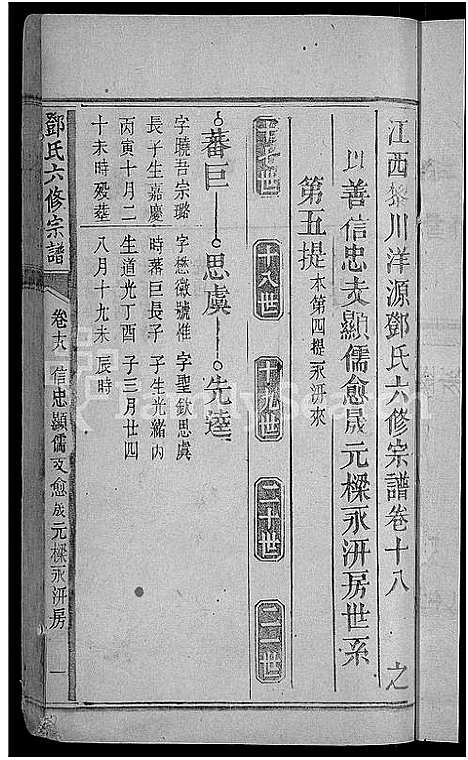 江西黎川洋源鄧氏六修宗譜卷十八 之
以善信忠文顯儒愈晟元樑永汧房世系
第五提 本第四提永汧來
十七世 十八世 十九世 二十世 二一世
蕃巨 思虞 先逵
字曉吾宗璐 字懋徵號惟 字聖欽思虞
長子生嘉慶 時蕃巨長子 子生光緒內
丙寅十月二 生道光丁酉 子三月廿四
十未時殁葬 八月十九未 辰時
鄧氏六修宗譜 卷十八 信忠顯儒文愈晟元樑永汧房 一
FamilySearch